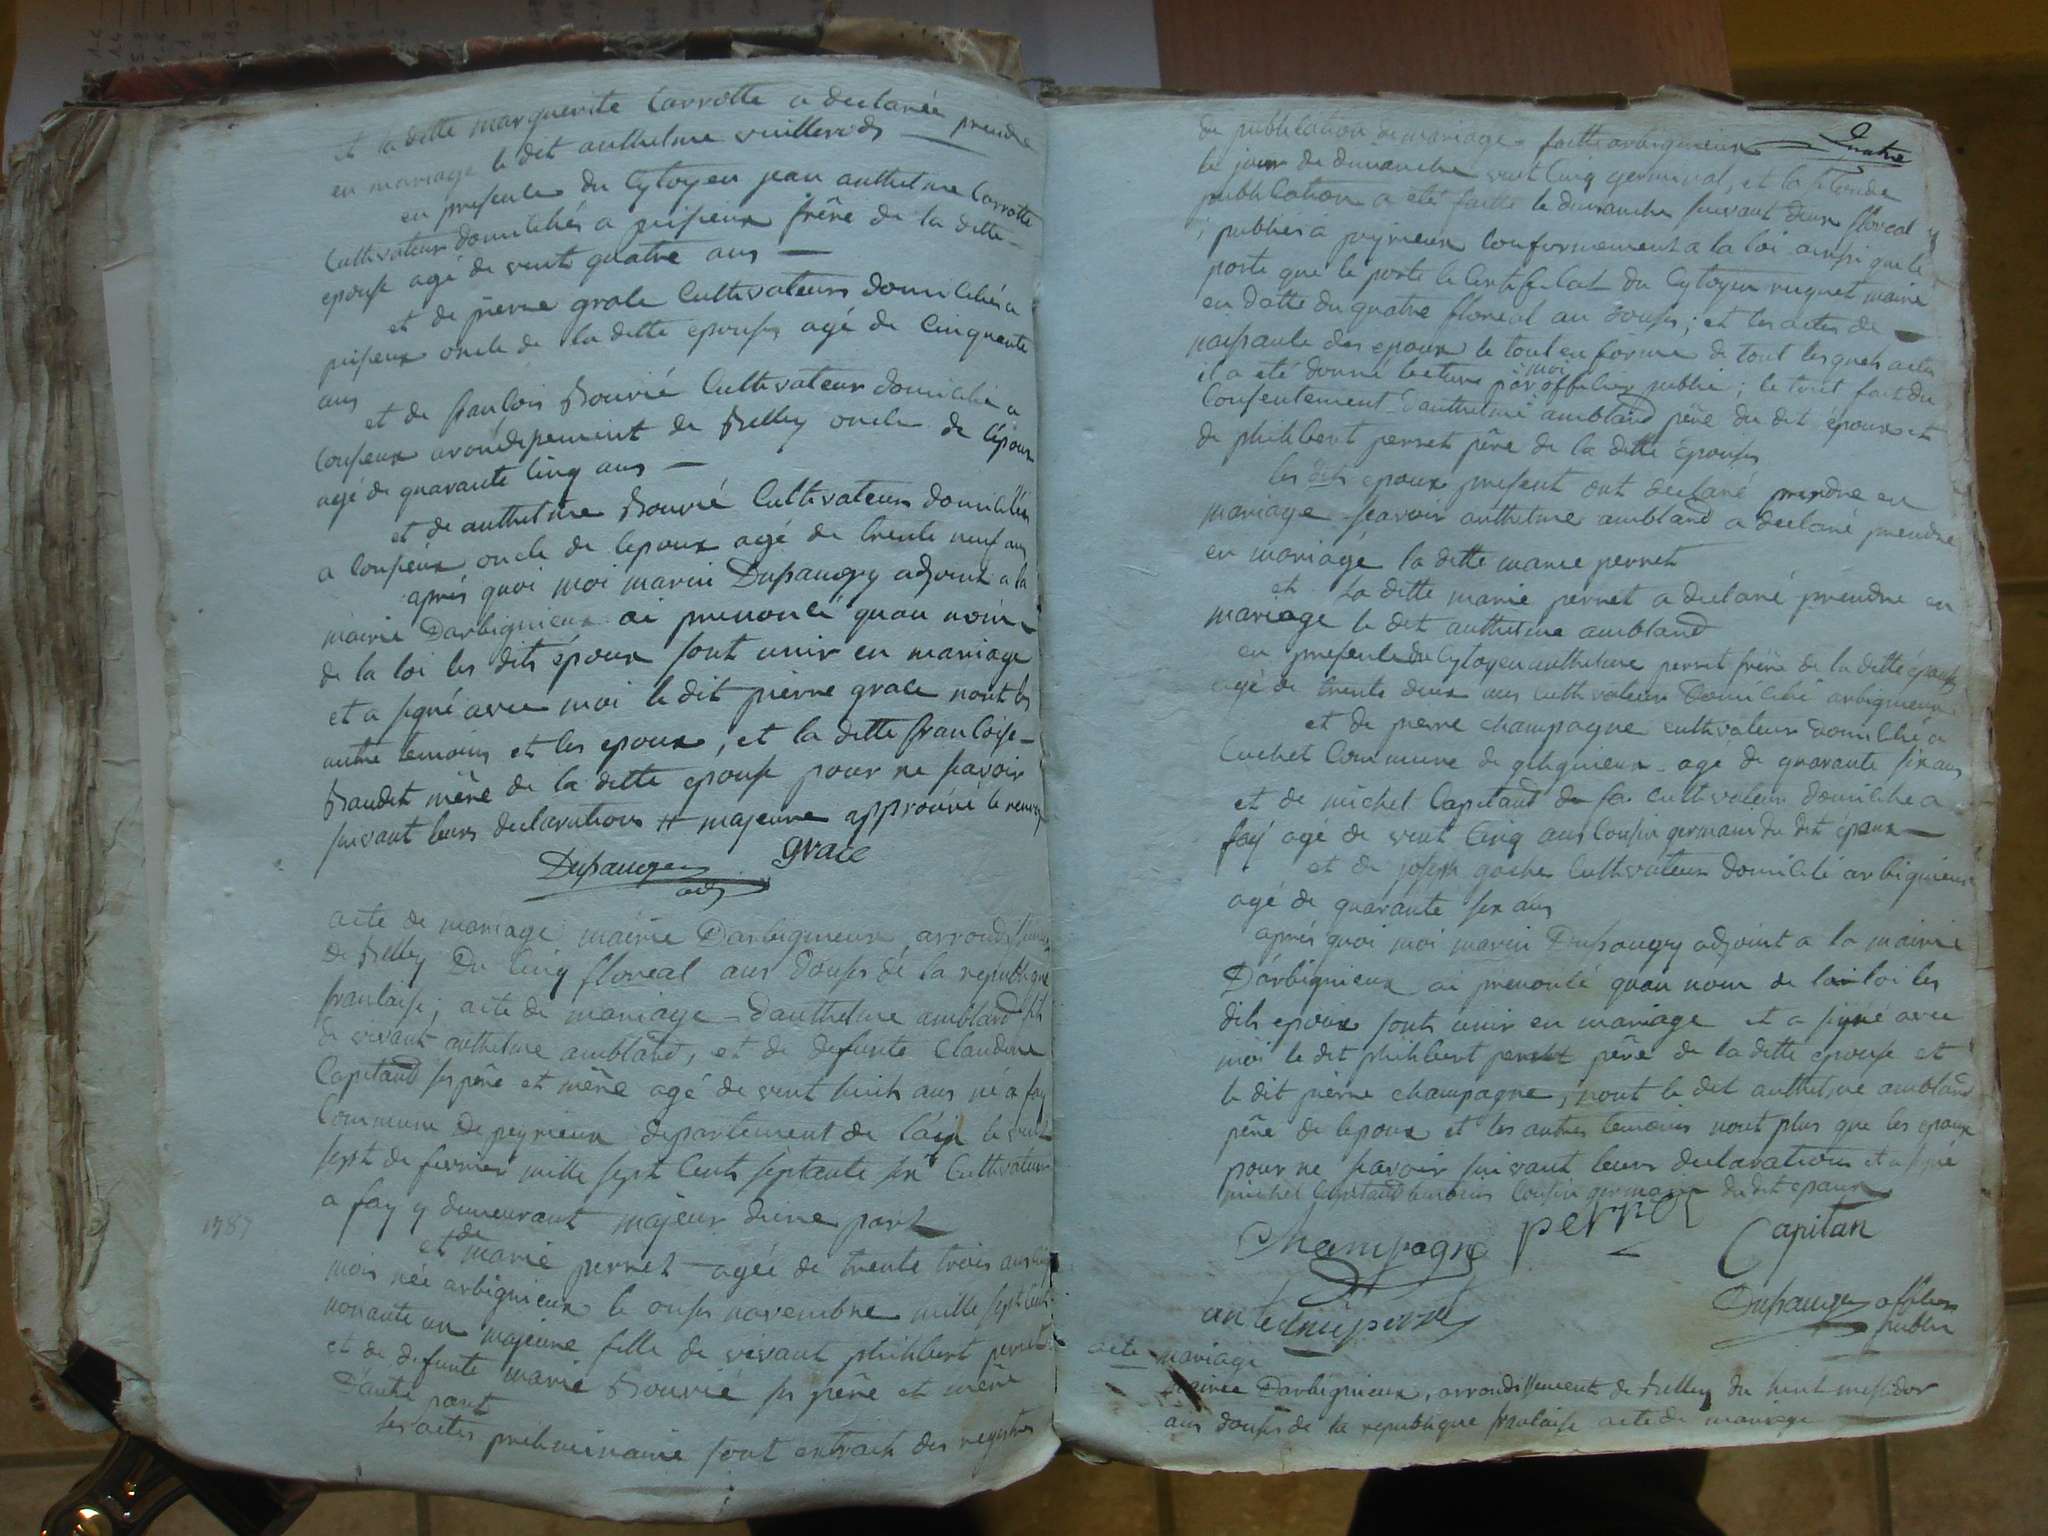 et la ditte marguerite Carrotte a declarée prendre
en mariage le dit anthelme vuillerod
en presence du Cytoyen jean anthelme Carrotte
Cultivateur domiciliés a pisieux frêre de la ditte
epouse agé de vent quatre ans
et de pierre grace Cultivateurs domiciliés a
pisieux oncle de la ditte epouse agé de Cinquante
ans
et de francois Bouvié Cultivateur domicilié a
Consieux arondissement de Belley oncle de l'époux
agé de quarante Cinq ans
et de anthelme Bouvié Cultivateur domiciliés
a Consieux oncle de lepoux agé de trente neuf ans
après quoi moi marin Dupaugey adjoint a la
mairie Darbignieux ai prenoncé quau nom
de la loi les dits époux sont unir en mariage
et a signé avec moi le dit pierre grace nont les
autre temoins et les epoux, et la ditte francoise
Baudet mêre de la ditte epouse pour ne savoir
suivant leurs declarations # majeure approuvé le renvoy
Dupaugey adj grace
acte de mariage mairie Darbignieux arrondissement
de Belley Du Cinq floreal ans douse de la republique
francaise; acte de mariage danthelme ambland fils
de vivant anthelme ambland, et de defunte Claudine
Capitand ses père et mêre agé de vent huit ans né a fay
Commune de peyrieux departement de lain le vent
sept de fevrier mille sept Cents septante six Cultivateur
a fay y demeurant majeur dune part
1787
et de marie perret agée de trente trois ans
mois née arbignieux le onse novembre mille sept Cent
nonante un majeure fille de vivant philibert perret
et de defunte marie Bouvié ses père et mêre
Dautre part
les actes preliminaire sont extrait des registres
quatre
de publication de mariage faitte arbignieux
le jour de dimanche vent Cinq germinal, et la seconde
publication a été faitte le dimanche suivant deux floreal
publiés a peyrieux Conformement a la loi ainsi que le
porte que le porte le Certificat du Cytoyen ruguet maire
en datte du quatre floreal an douse; et les actes de
naissance des epoux le tout en forme de tout lesquels actes
il a été donné lecture par moi officier public; le tout fait du
Consentement danthelme ambland père du dit époux et
de philibert perret père de la ditte épouse
les dits epoux present ont declaré prendre en
mariage scavoir anthelme ambland a declaré prendre
en mariage la ditte marie perret
et la ditte marie perret a declaré prendre en
mariage le dit anthelme ambland
en presence du Cytoyen anthelme perret frêre de la ditte épouse
agé de trente deux ans Cultivateur domicilié arbignieux
et de pierre champagne cultivateur domicilié a
Cuchet Commune de gelignieux agé de quarante six ans
et de michel Capitand de fa Cultivateur domicilié a
fay agé de vent Cinq ans Cousin germain du dit époux
et de joseph goche Cultivateur domicilié arbignieux
agé de quarante six ans
après quoi moi marin Dupaugey adjoint a la mairie
Darbignieux ai prenoncé quau nom de la loi les
dits epoux sont unir en mariage et a signé avec
moi le dit philibert perret père de la ditte epouse et
le dit pierre champagne, nont le dit anthelme ambland
père de lepoux et les autres temoins nont plus que les epoux
pour ne savoir suivant leurs declarations et a signé
michel Capitand Cousin germain du dit epoux
Champagne perret Capitan
Dupaugey officier
public
acte mariage
mairie Darbignieux, arrondissement de Belley du huit messidor
ans douse de la republique francaise acte de mariage